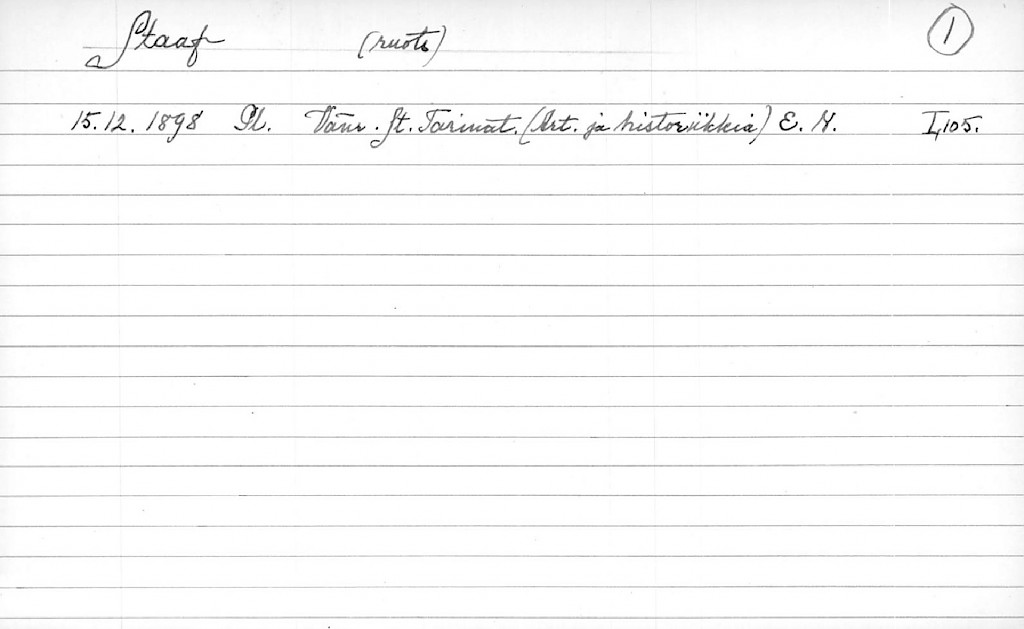 Staaf (ruots) 1
15.12.1898 Pl. Vänr. St. Tarinat. (Art. ja historiikkia) E. N. I,105.